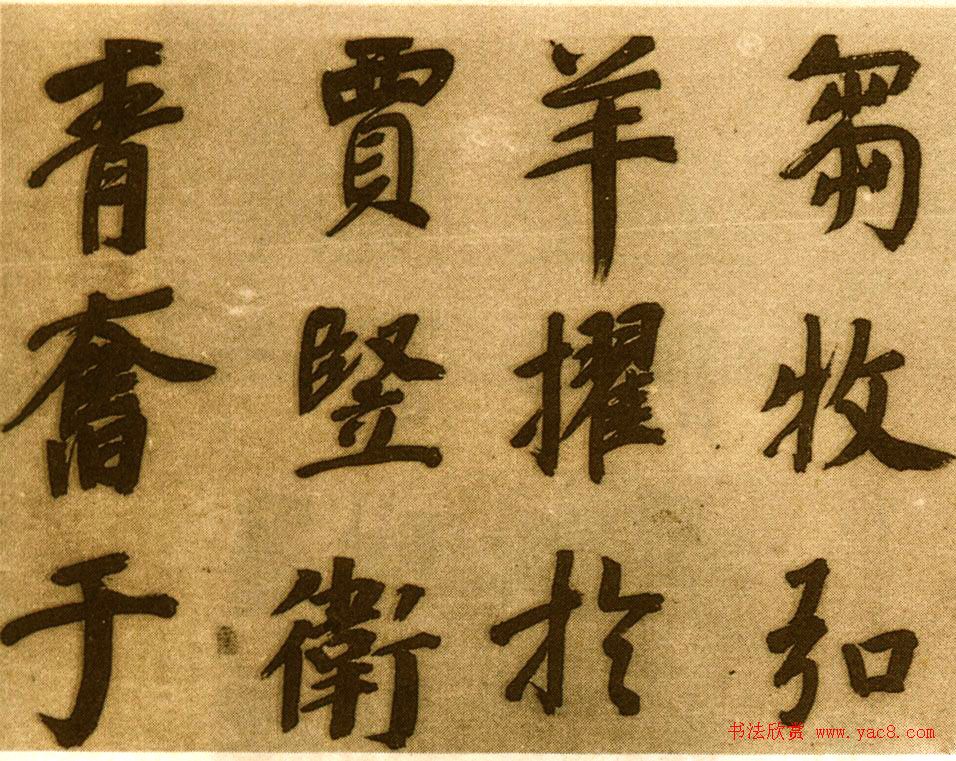 芻牧弘
羊擢於
賈竪衛
青奮于
书法欣赏 www.yac8.com